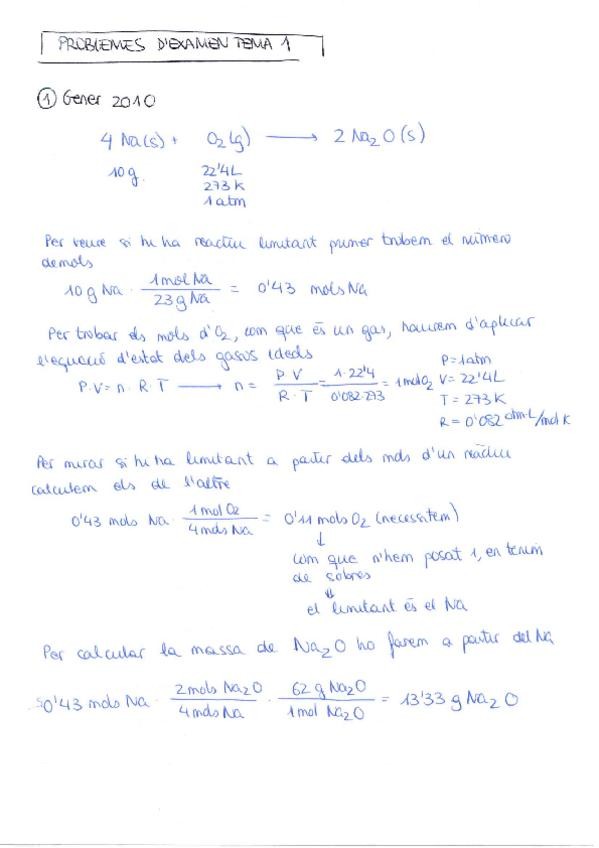 PROBLEMES D'EXAMEN TEMA 1
① Gener 2010
4 Na(s) + O₂(g) ⟶ 2 Na₂O(s)
10 g. 22'4L
273 K
1 atm
Per veure si hi ha reactiu limitant primer trobem el número
de mols
10 g Na · 1 mol Na / 23 g Na = 0'43 mols Na
Per trobar els mols d'O₂, com que és un gas, haurem d'aplicar
l'equació d'estat dels gasos ideals
P·V = n·R·T ⟶ n = P·V / R·T = 1·22'4 / 0'082·273 = 1 mol O₂
P = 1 atm
V = 22'4L
T = 273 K
R = 0'082 atm·L/mol K
Per mirar si hi ha limitant a partir dels mols d'un reactiu
calculem els de l'altre
0'43 mols Na · 1 mol O₂ / 4 mols Na = 0'11 mols O₂ (necessitem)
↓
com que n'hem posat 1, en tenim
de sobres
⇓
el limitant és el Na
Per calcular la massa de Na₂O ho farem a partir del Na
0'43 mols Na · 2 mols Na₂O / 4 mols Na · 62 g Na₂O / 1 mol Na₂O = 13'33 g Na₂O